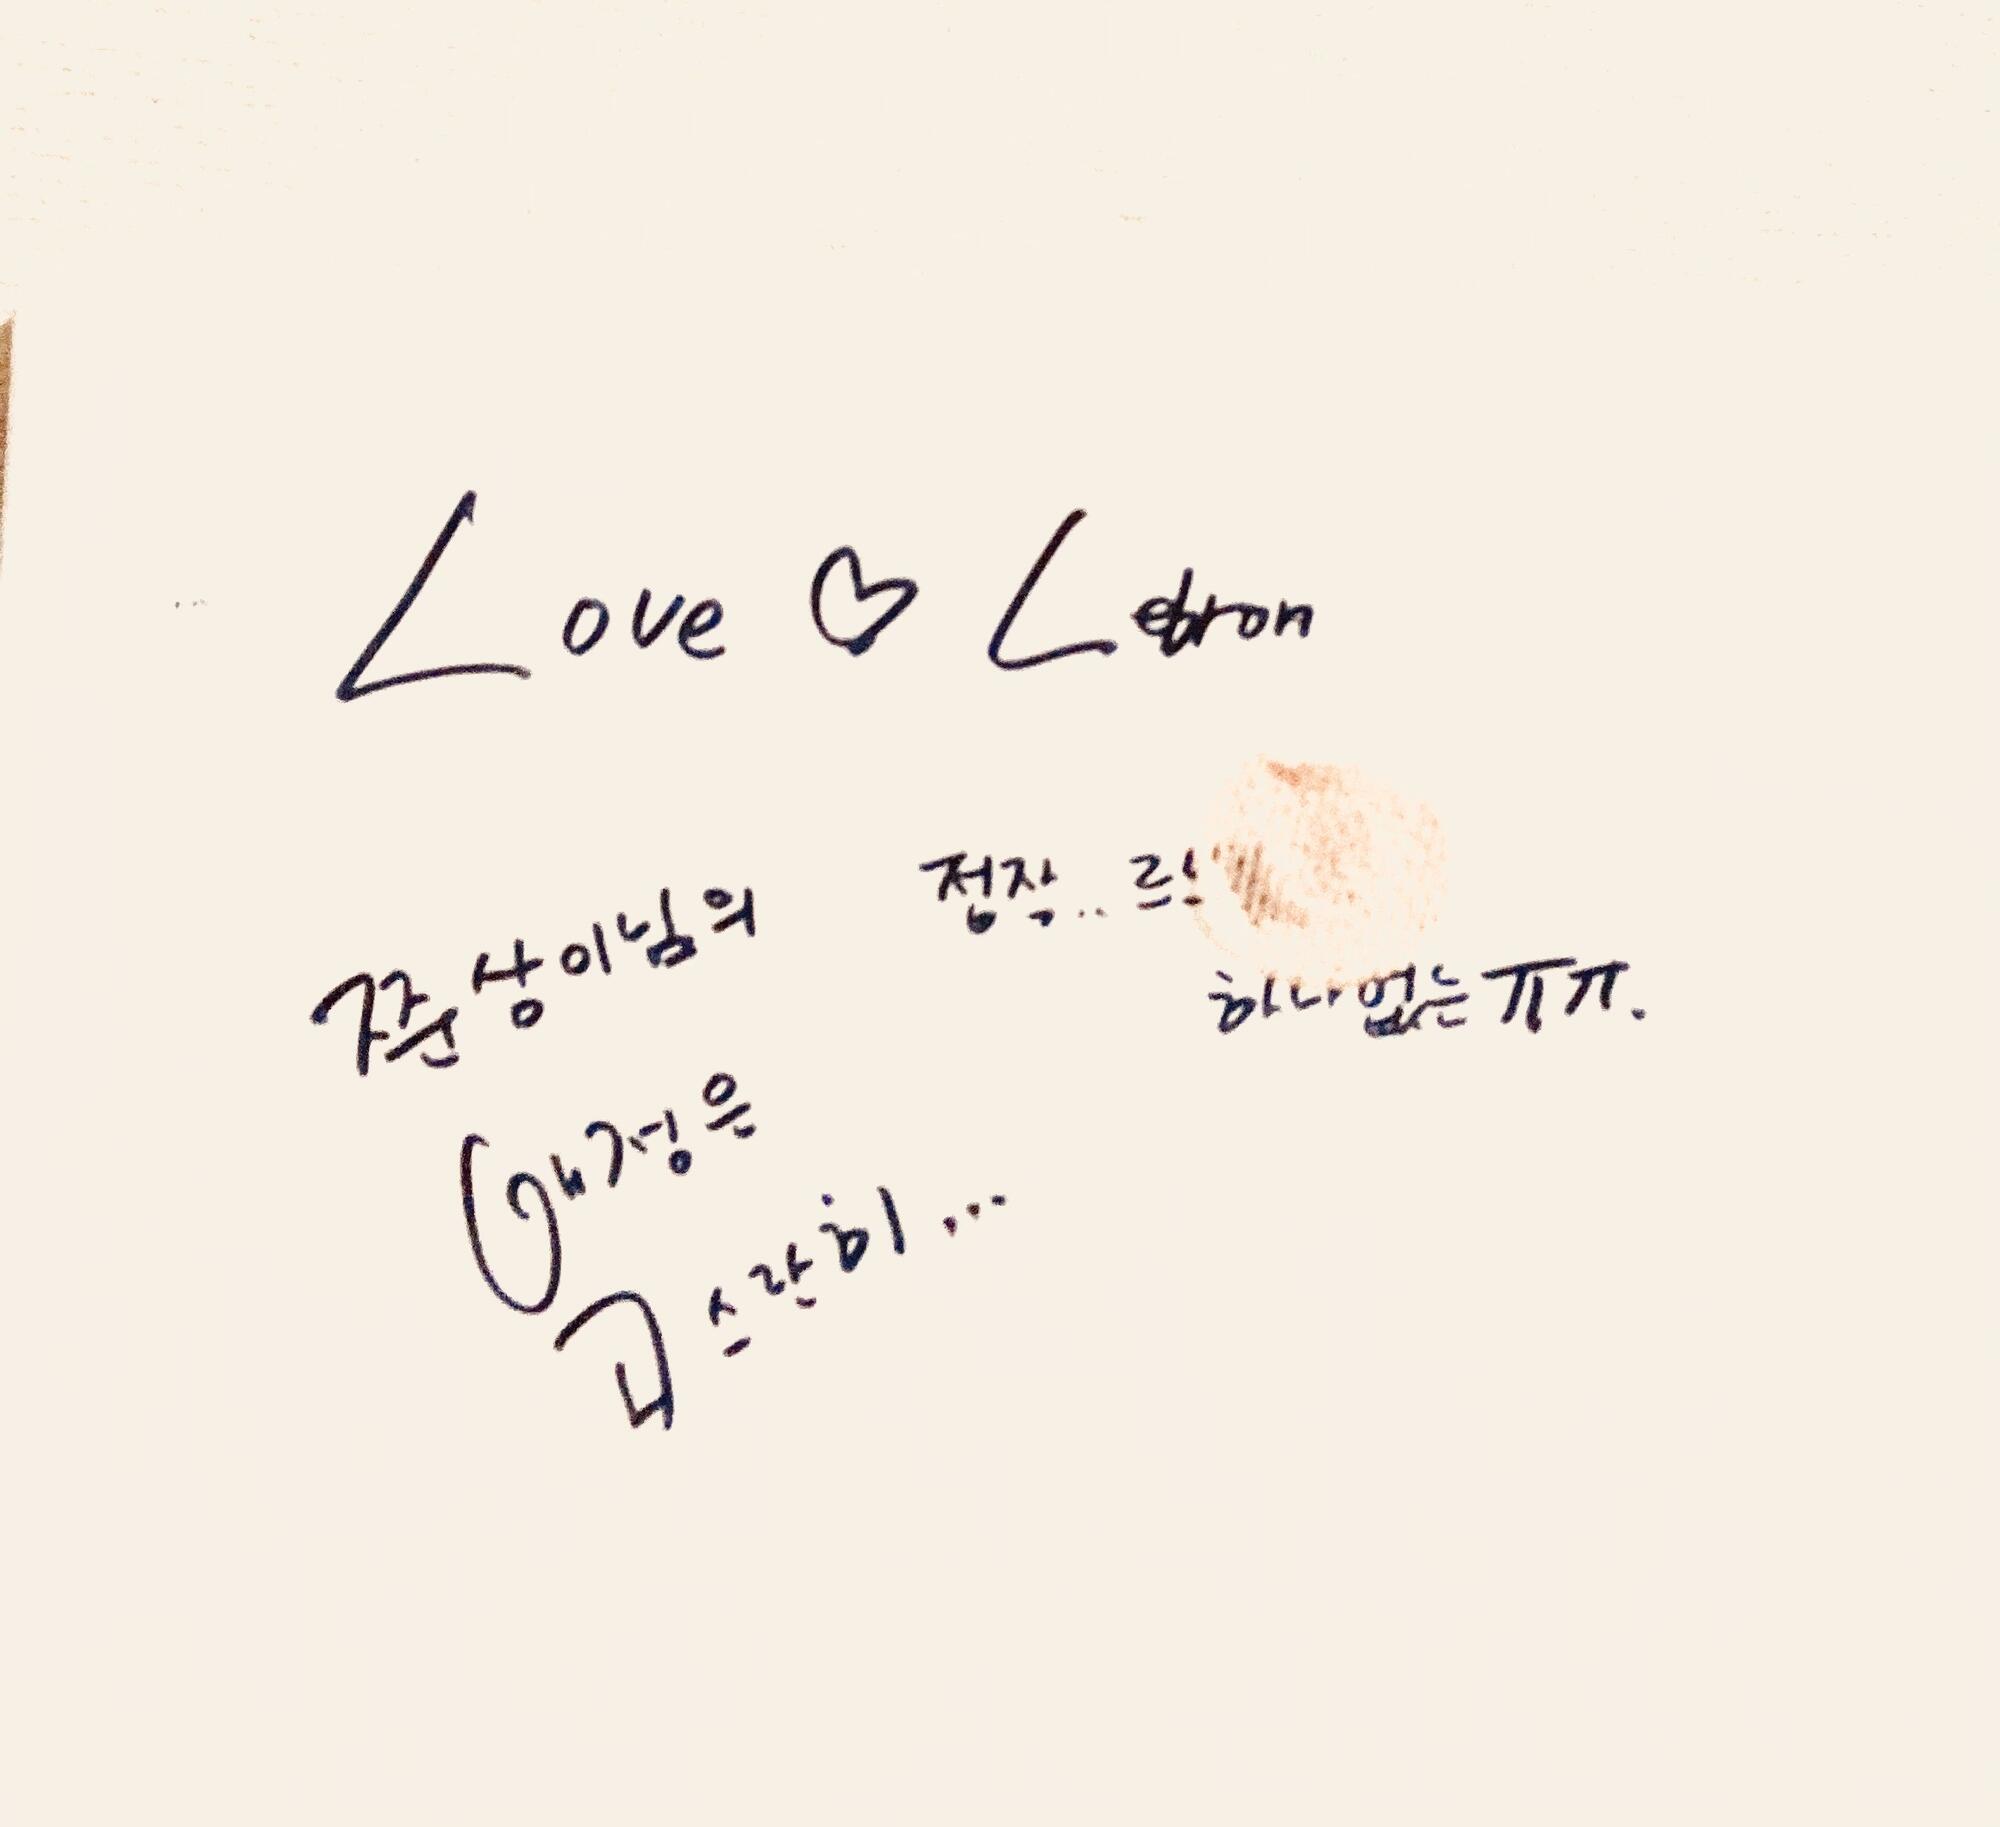 Love ♡ Lebron
쭌상이님의
애정은
고스란히...
정작.. 르
하나 없는 ㅠㅠ.